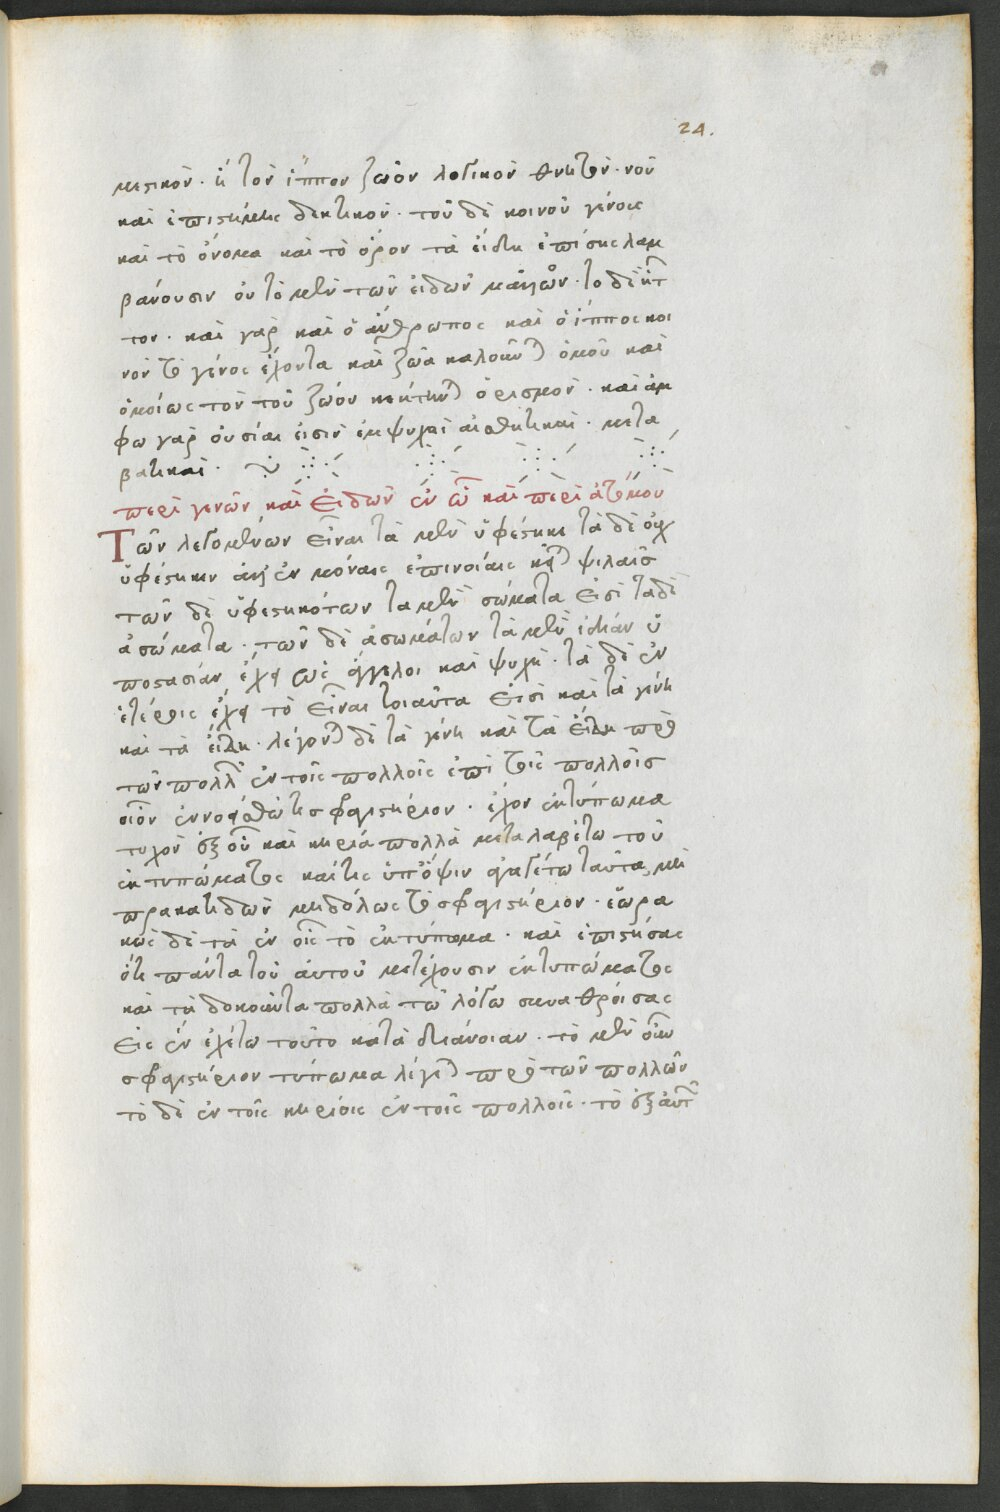 24.
μεςικόν· ἢ τὸν ἵππον ζῶον λογικὸν θνητόν· νοῦ
καὶ ἐπιστήμης δεκτικόν· τοῦ δὲ κοινοῦ γένους
καὶ τὸ ὄνομα καὶ τὸ ὅρον τὰ εἴδη ἐπίσης λαμ
βάνουσιν οὐ τὸ μὲν τῶν εἰδῶν μᾶλλον· τὸ δὲ ἧτ
τον· καὶ γὰρ καὶ ὁ ἄνθρωπος καὶ ὁ ἵππος κοι
νὸν τὸ γένος ἔχοντα καὶ ζῶα καλοῦνται ὁμοῦ καὶ
ὁμοίως τὸν τοῦ ζώου κέκτηνται ὁρισμόν· καὶ ἄμ
φω γὰρ οὐσίαι εἰσιν ἔμψυχαι αἰσθητικαί· μετα
βατικαί·
περὶ γενῶν καὶ εἰδῶν ἐν ᾧ καὶ περὶ ἀτόμου
Τῶν λεγομένων εἶναι τὰ μὲν ὑφέστηκε τὰ δὲ οὐχ
ὑφέστηκεν ἀλλ' ἐν μόναις ἐπινοίαις κεῖται ψιλαῖς
τῶν δὲ ὑφεστηκότων τὰ μὲν σώματα εἰσὶ τὰ δὲ
ἀσώματα· τῶν δὲ ἀσωμάτων τὰ μὲν ἰδίαν ὑ
πόστασιν ἔχει ὡς ἄγγελοι καὶ ψυχή· τὰ δὲ ἐν
ἑτέροις ἔχει τὸ εἶναι τοιαῦτα εἰσὶ καὶ τὰ γένη
καὶ τὰ εἴδη· λέγονται δὲ τὰ γένη καὶ τὰ εἴδη πρὸ
τῶν πολλῶν ἐν τοῖς πολλοῖς ἐπὶ τοῖς πολλοῖς
οἷον ἐννοείσθω τι σφραγιστήριον· ἔχον ἐκτύπωμα
τυχὸν ἐξ οὗ καὶ κηρία πολλὰ μεταλαβέτω τοῦ
ἐκτυπώματος καί τις ὑπ' ὄψιν ἀγαγέτω ταῦτα, μὴ
προκατιδὼν μηδόλως τὸ σφραγιστήριον· ἑωρα
κὼς δὲ τὰ ἐν οἷς τὸ ἐκτύπωμα· καὶ ἐπιστήσας
ὅτι πάντα τοῦ αὐτοῦ μετέχουσιν ἐκτυπώματος
καὶ τὰ δοκοῦντα πολλὰ τῷ λόγω συναθροίσας
εἰς ἓν ἐχέτω τοῦτο κατὰ διάνοιαν· τὸ μὲν οὖν
σφραγιστήριον τύπωμα λέγεται πρὸ τῶν πολλῶν
τὸ δὲ ἐν τοῖς κηρίοις ἐν τοῖς πολλοῖς· τὸ ἐξ αὐτῶν